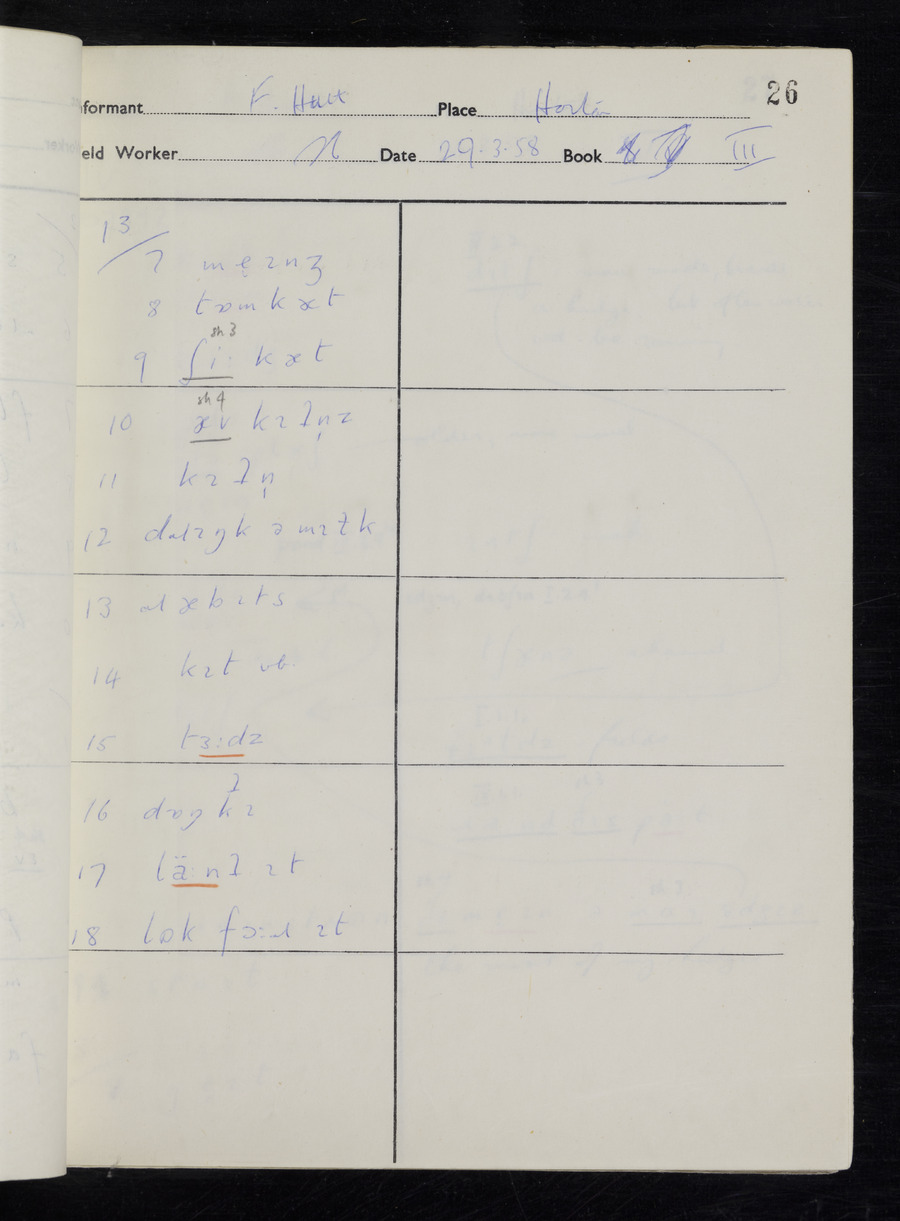 26
nformant F. Hutt Place Horton
eld Worker N Date 29.3.58 Book III
13
7 mɛɪnʒ
8 tɒmkæt
sh 3
9 ʃi· kæt
sh 4
10 æv kɪʔn̩z
11 kɪʔn̩
12 ə mɪɫk
13 ɹæbɪts
14 kɪt vb.
15 tɜ:dz
16 dɒŋkɪ
17 lä:nʔ ɪt
18 lʊk fɔ:ɹ ɪt